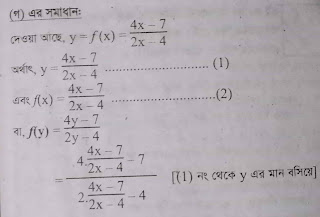 (গ) এর সমাধান:
দেওয়া আছে, y = f (x) = (4x − 7)/(2x − 4)
অর্থাৎ, y = (4x − 7)/(2x − 4) ................................. (1)
এবং f(x) = (4x − 7)/(2x − 4) .................................(2)
বা, f(y) = (4y − 7)/(2y − 4)
= (4·(4x − 7)/(2x − 4) − 7)/(2·(4x − 7)/(2x − 4) − 4) [(1) নং থেকে y এর মান বসিয়ে]